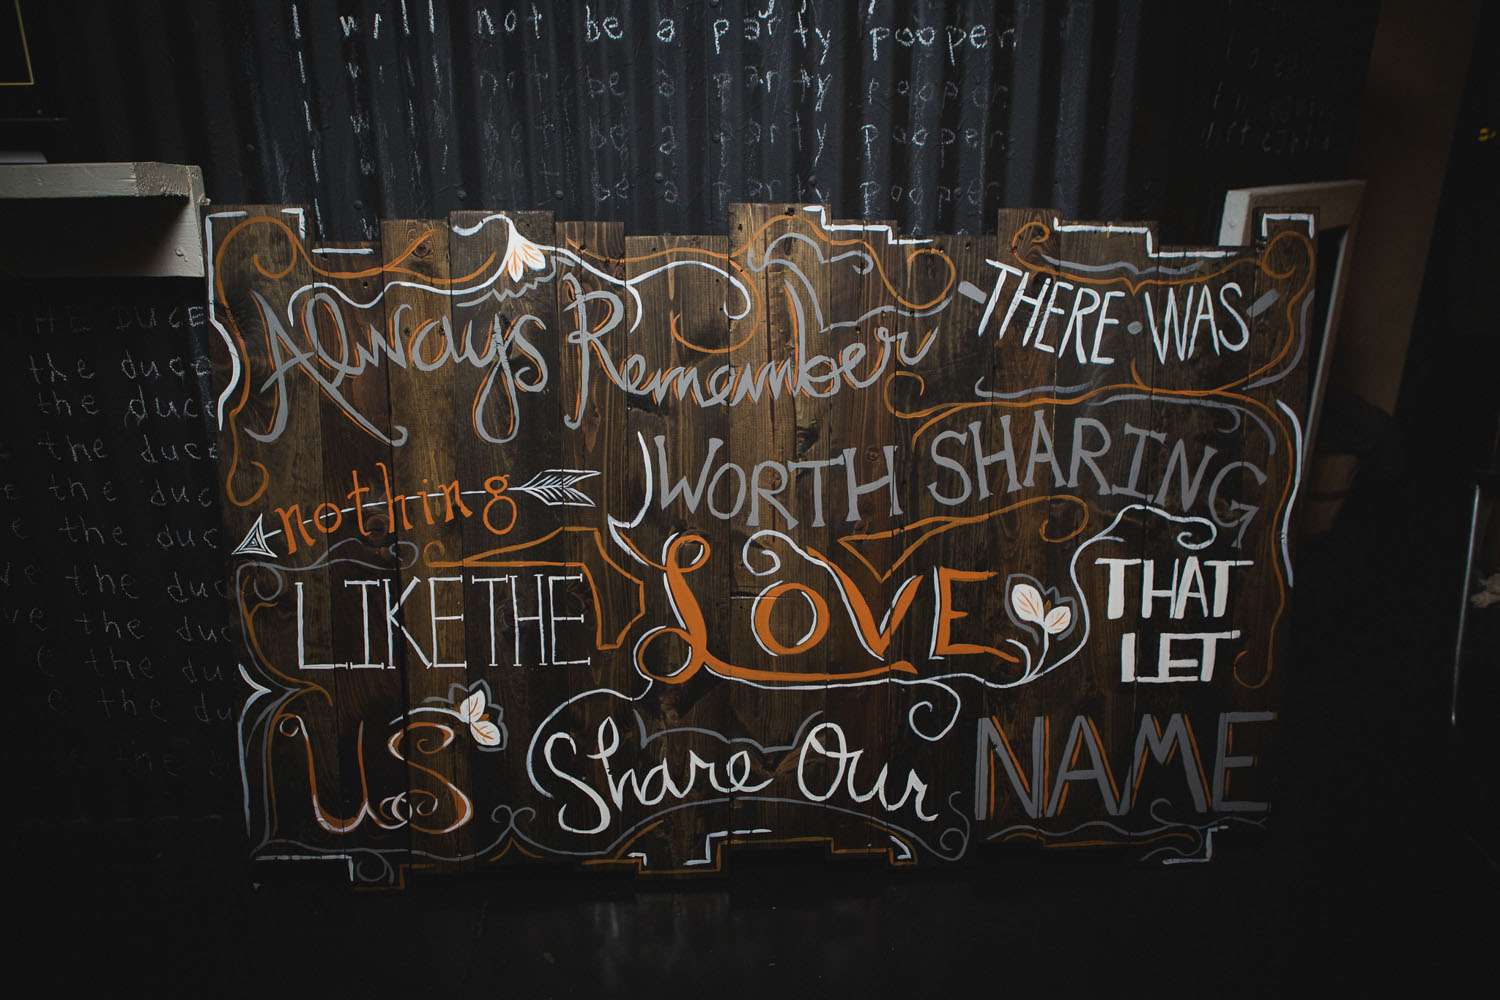 I will not be a party pooper
I will not be a party pooper
I w not be a party pooper
be a party pooper
Always Remember THERE WAS
nothing WORTH SHARING
LIKE THE LOVE THAT LET
US Share Our NAME
THE DUCE
the duce
the duce
the duce
the duc
the duc
the duc
the duc
the du
the du
the d